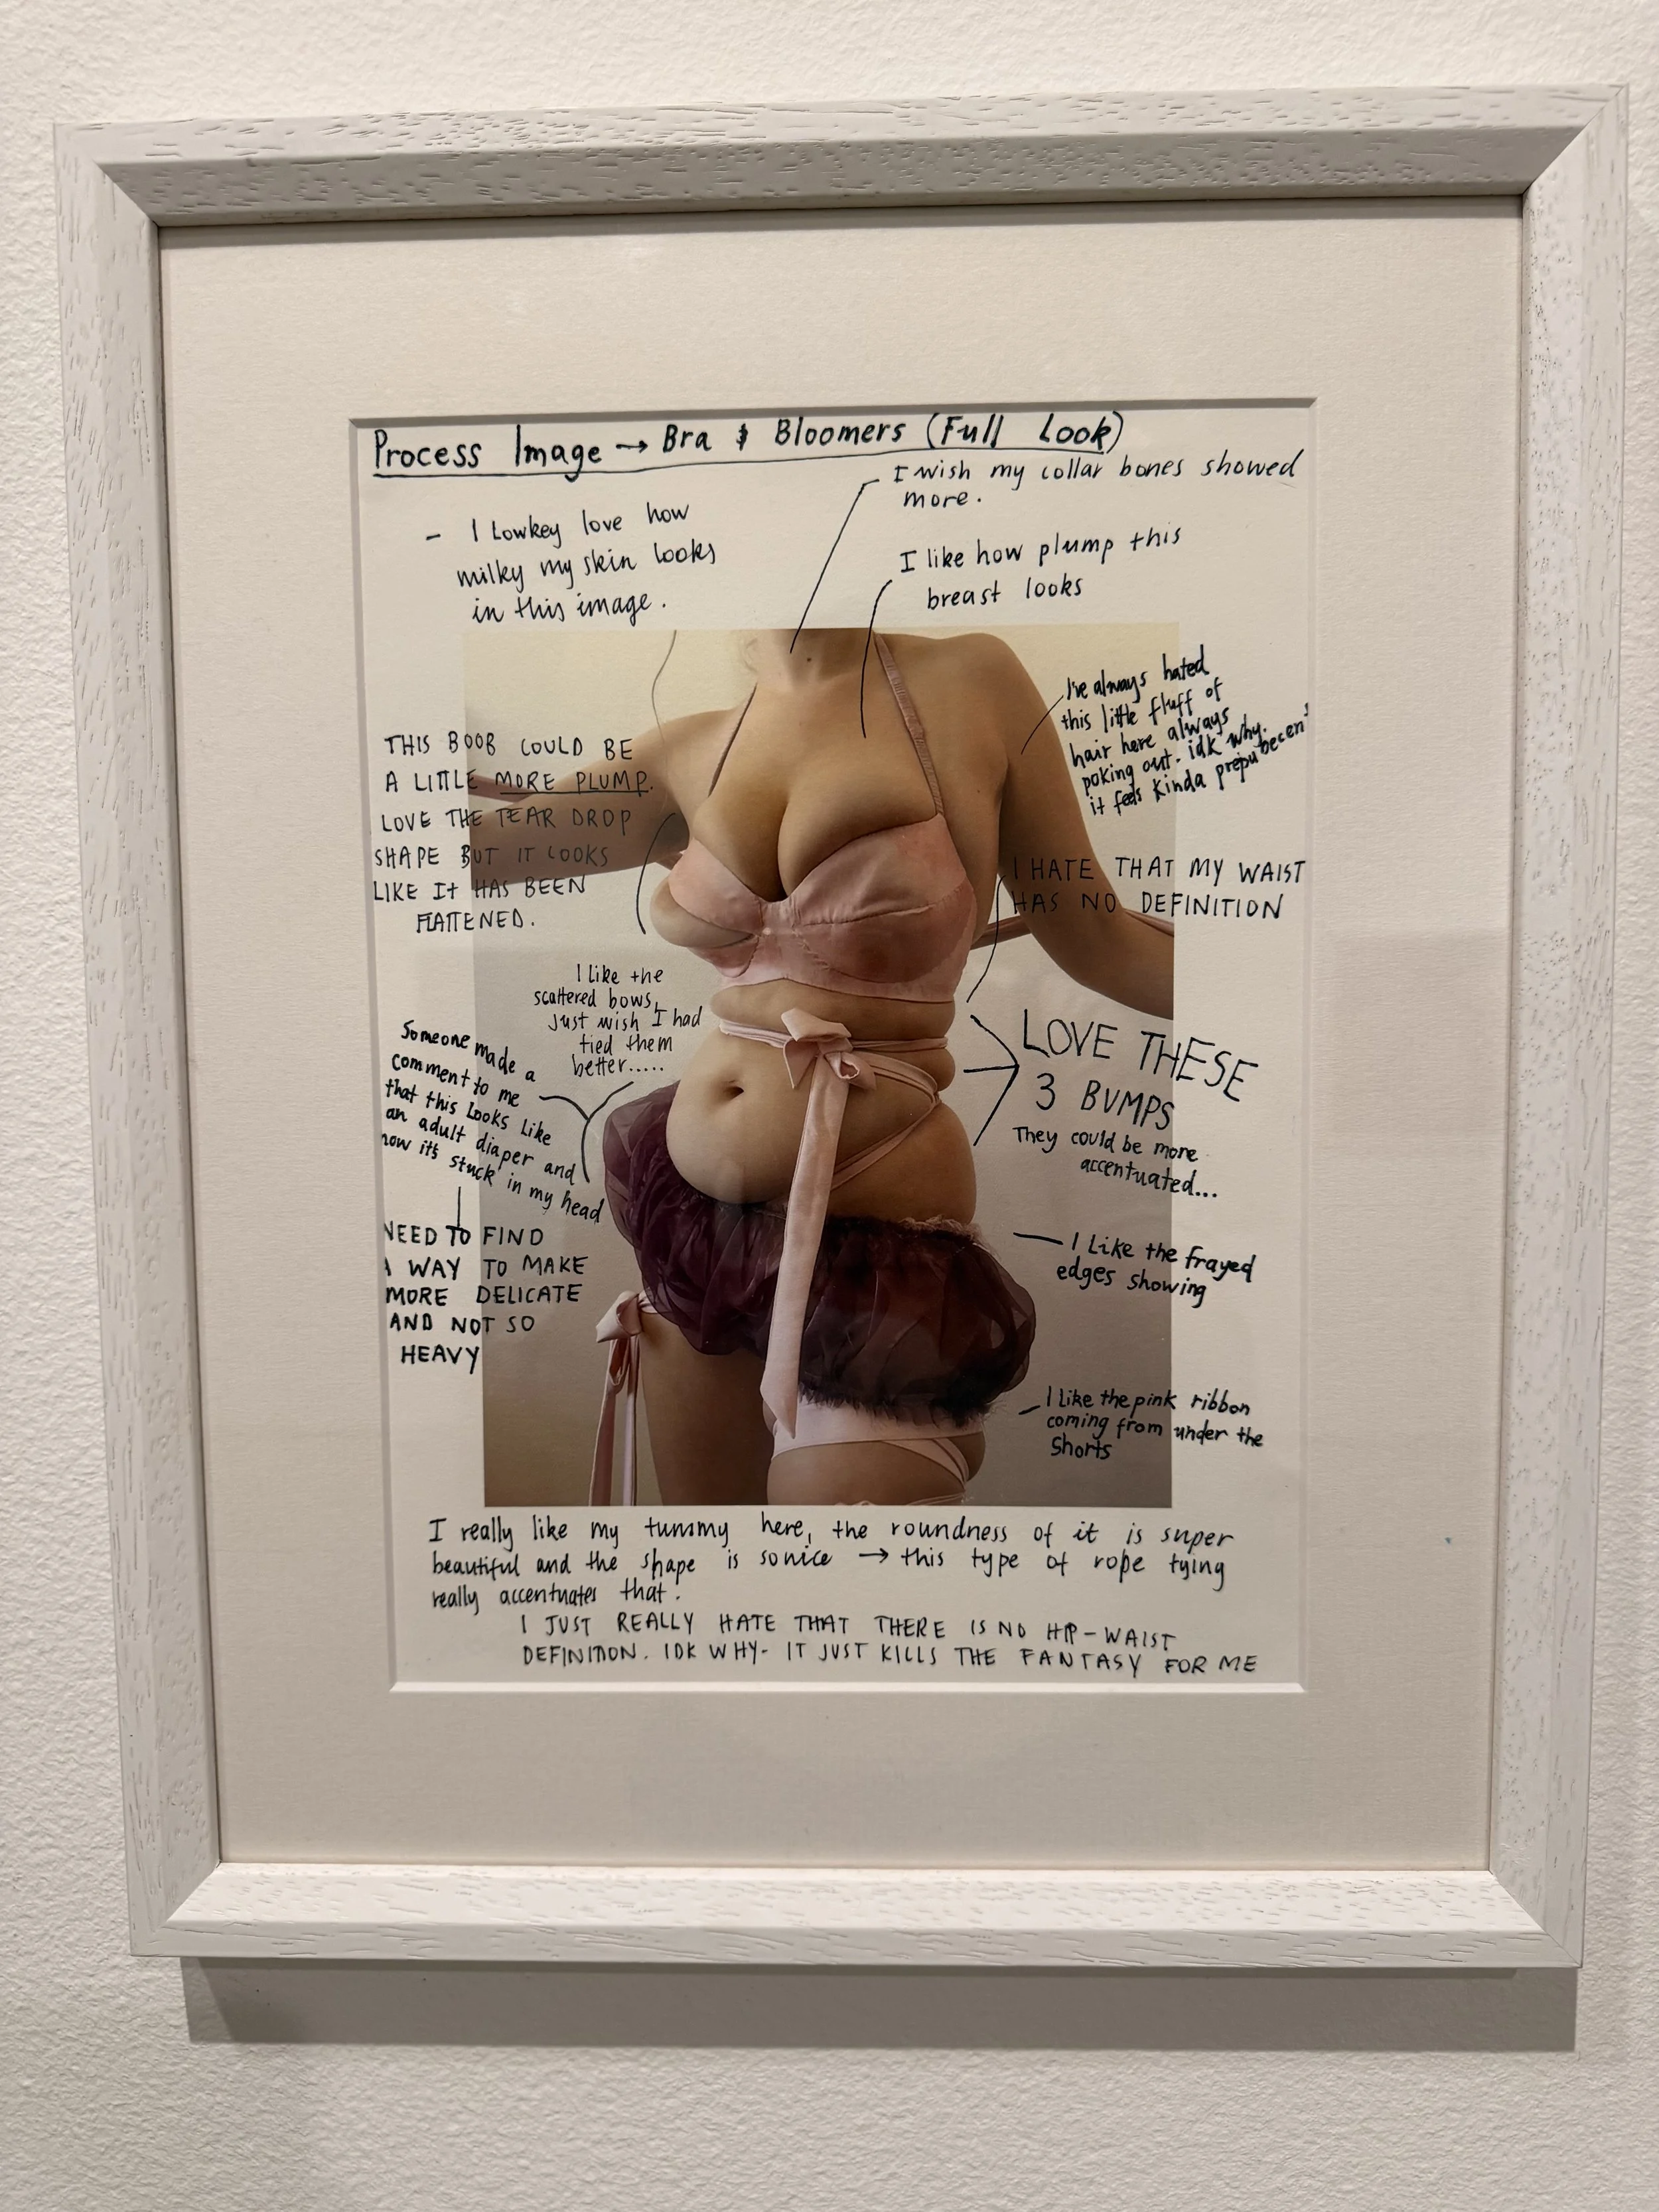 Process Image → Bra & Bloomers (Full Look)
I wish my collar bones showed
more.
- I Lowkey love how
milky my skin looks
in this image.
I like how plump this
breast looks
I've always hated
this little fluff of
hair here always
poking out. idk why.
it feels kinda prepubecent
THIS BOOB COULD BE
A LITTLE MORE PLUMP.
LOVE THE TEAR DROP
SHAPE BUT IT LOOKS
LIKE It HAS BEEN
FLATTENED.
I HATE THAT MY WAIST
HAS NO DEFINITION
I like the
scattered bows,
Just wish I had
tied them
better.....
Someone made a
comment to me
that this Looks Like
an adult diaper and
now it's stuck in my head
LOVE THESE
3 BUMPS
They could be more
accentuated...
NEED TO FIND
A WAY TO MAKE
MORE DELICATE
AND NOT SO
HEAVY
I Like the frayed
edges showing
I like the pink ribbon
coming from under the
shorts
I really like my tummy here, the roundness of it is super
beautiful and the shape is so nice → this type of rope tying
really accentuates that.
I JUST REALLY HATE THAT THERE IS NO HIP-WAIST
DEFINITION. IDK WHY- IT JUST KILLS THE FANTASY FOR ME